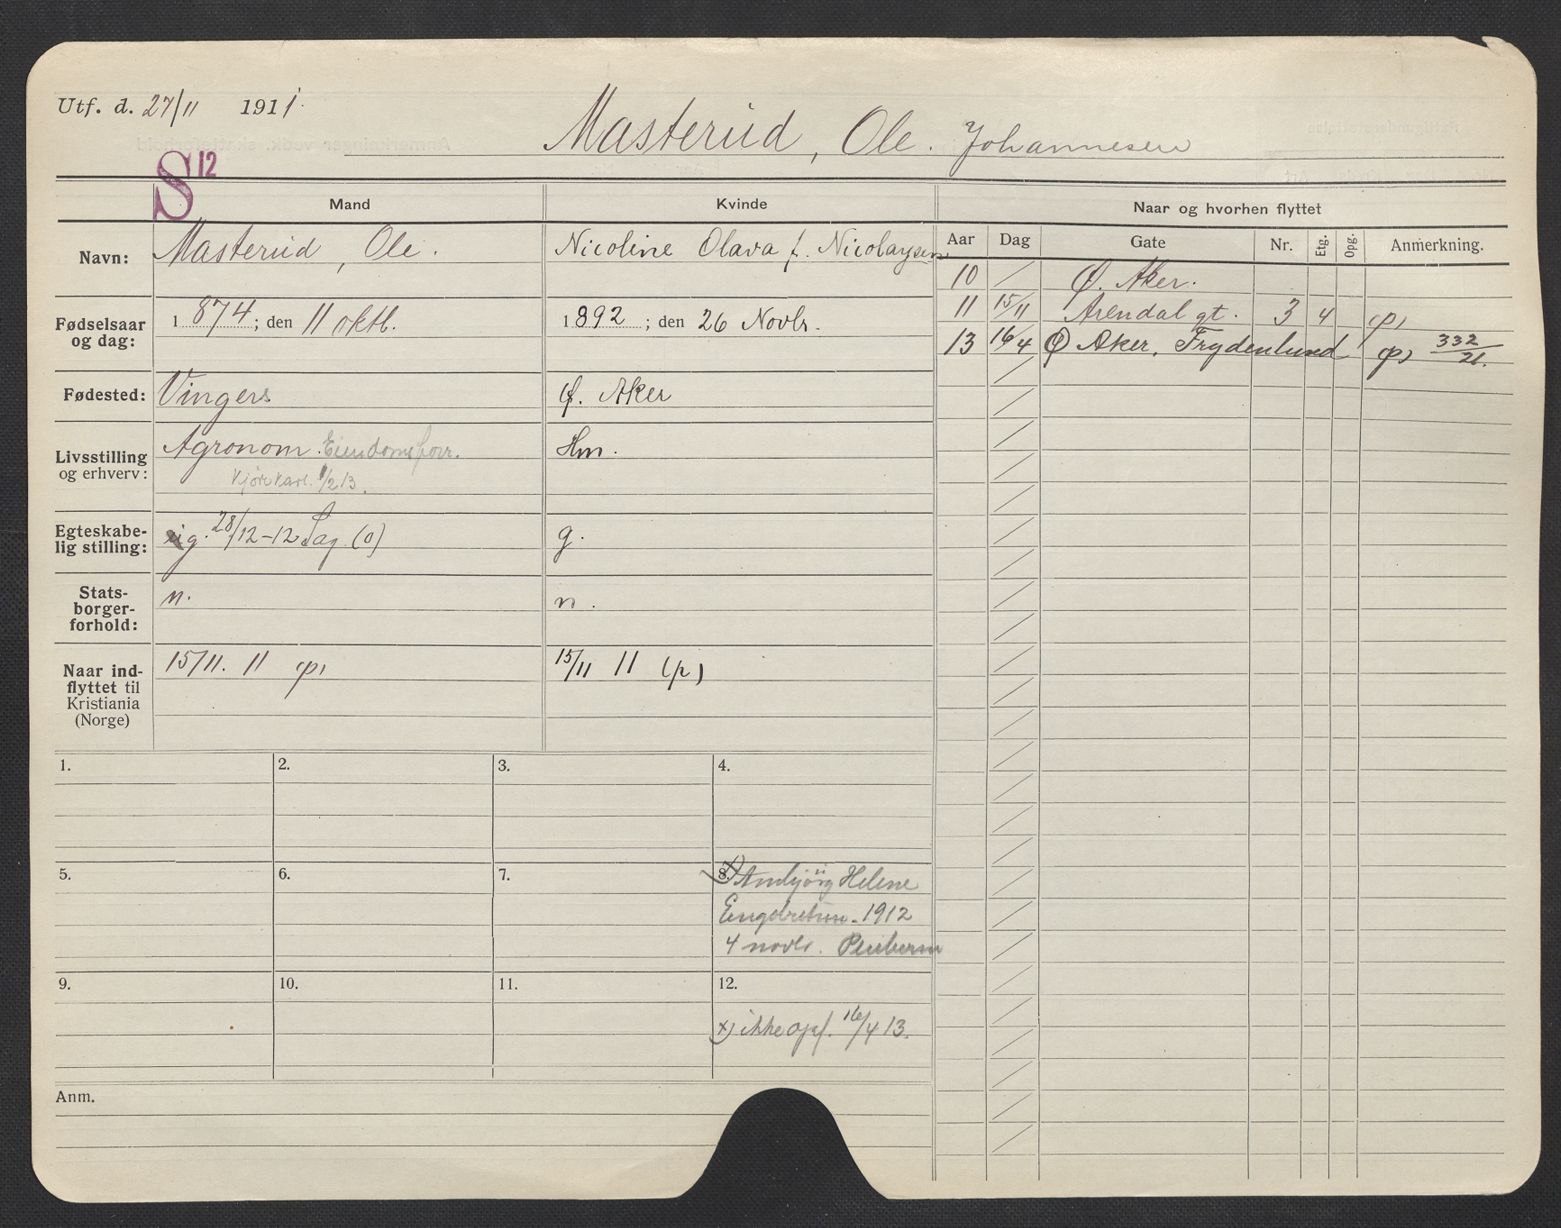 Utf. d. 27/11 1911.
Masterud, Ole. Johannesen
S 12
Mand
Kvinde
Naar og hvorhen flyttet
Navn:
Masterud, Ole.
Nicoline Olava f. Nicolaysen
Fødselsaar og dag:
1874; den 11 oktb.
1892; den 26 Novbr.
Fødested:
Vinger
Ø. Aker
Livsstilling og erhverv:
Agronom.
Kjørekarl. 1/2 13.
Hm.
Egteskabelig stilling:
g. 28/12-12 Sag. (0)
g.
Statsborgerforhold:
n.
n.
Naar indflyttet til Kristiania (Norge)
15/11. 11 (p)
15/11 11 (p)
Aar Dag Gate Nr. Etg. Opg. Anmerkning.
10 Ø. Aker.
11 15/11 Arendal gt. 3 4 (p)
13 16/4 Ø Aker, Frydenlund (p) 332/21.
1.
2.
3.
4.
5.
6.
7.
8. x) Helene
Engebretsen - 1912
4 novbr.
9.
10.
11.
12.
x) ikke opf. 16/4 13.
Anm.